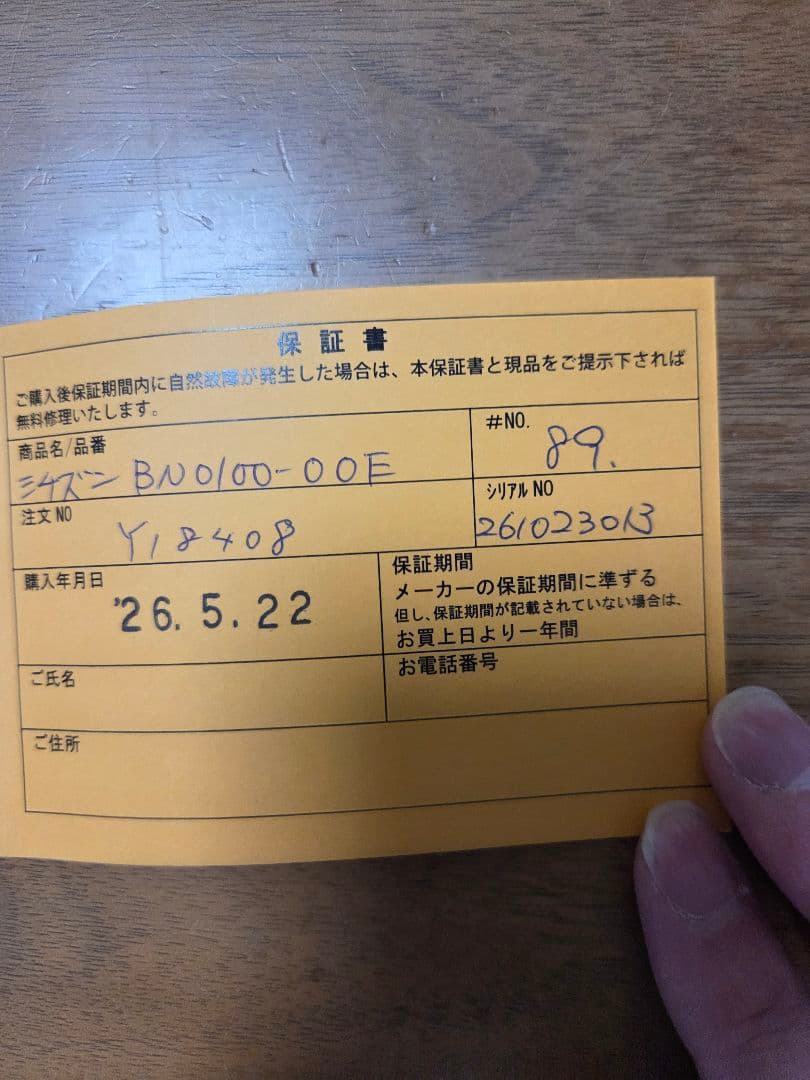 保証書
ご購入後保証期間内に自然故障が発生した場合は、本保証書と現品をご提示下されば
無料修理いたします。
商品名/品番
シチズン BN0100-00E
#NO.
89.
注文NO
Y18408
シリアルNO
261023013
購入年月日
'26.5.22
保証期間
メーカーの保証期間に準ずる
但し、保証期間が記載されていない場合は、
お買上日より一年間
ご氏名
お電話番号
ご住所